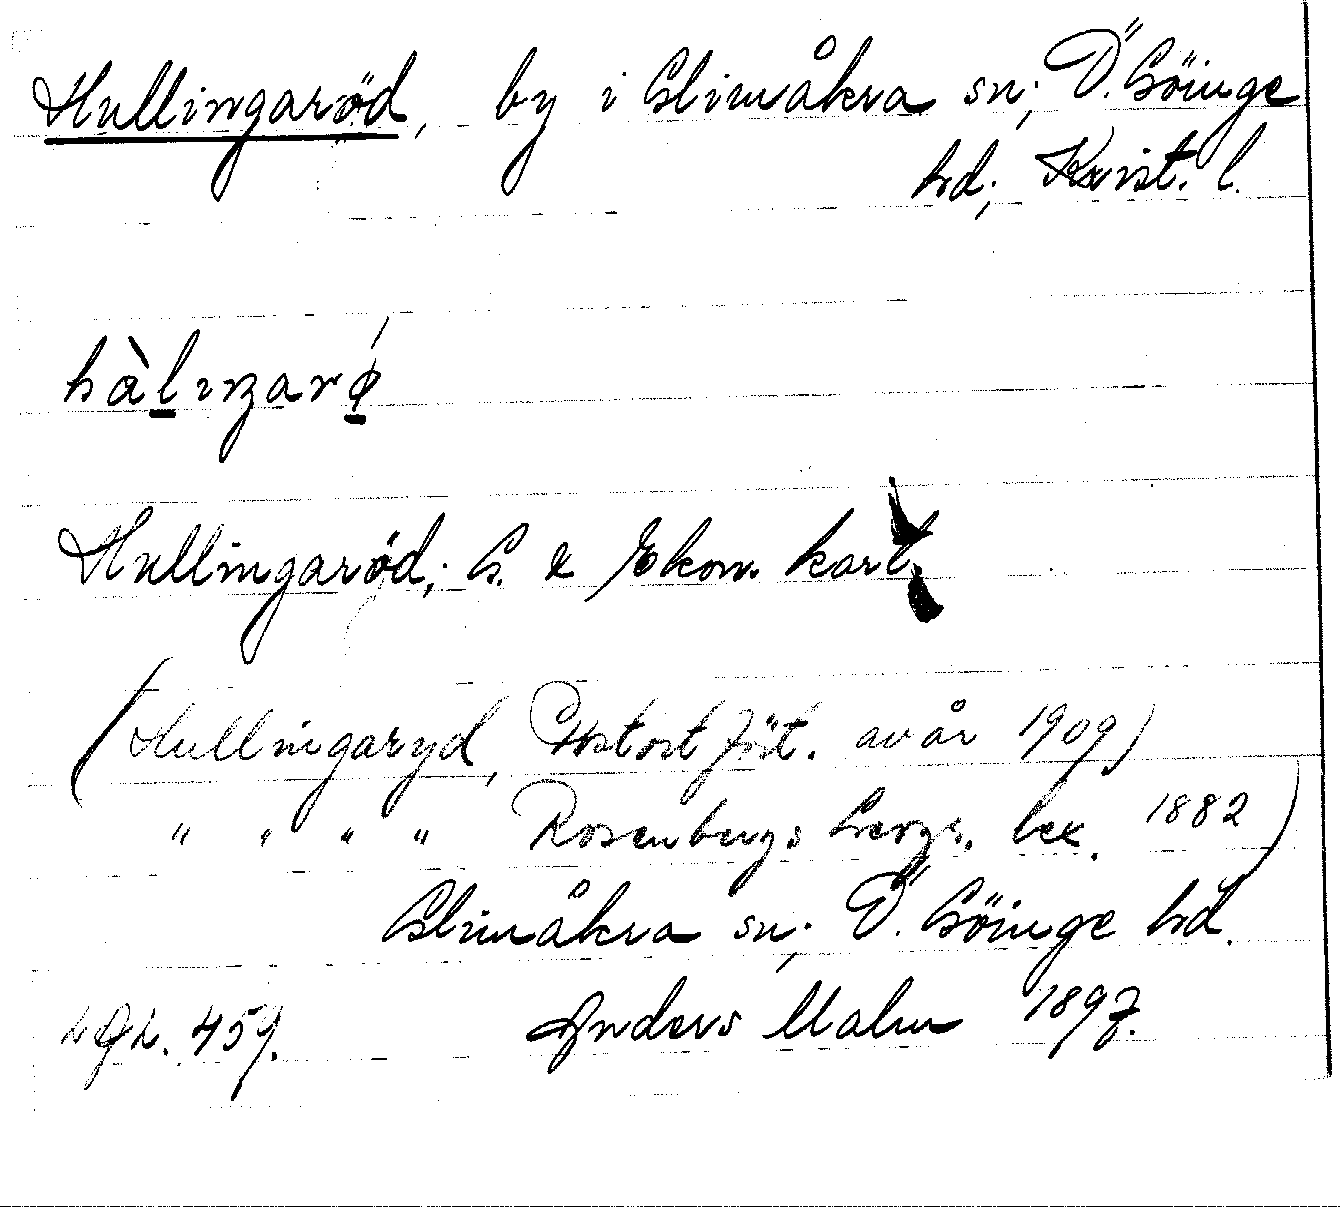 Hullingaröd, by i Glimåkra sn; Ö. Göinge
hd; Krist. l.
hàlıŋarǿ
Hullingaröd; G. & Ekon. kart.
(Hullingaryd, Postort fört. av år 1909)
" " " " Rosenbergs Geogr. lex. 1882)
Glimåkra sn; Ö. Göinge hd.
459. Anders Malm 1897.